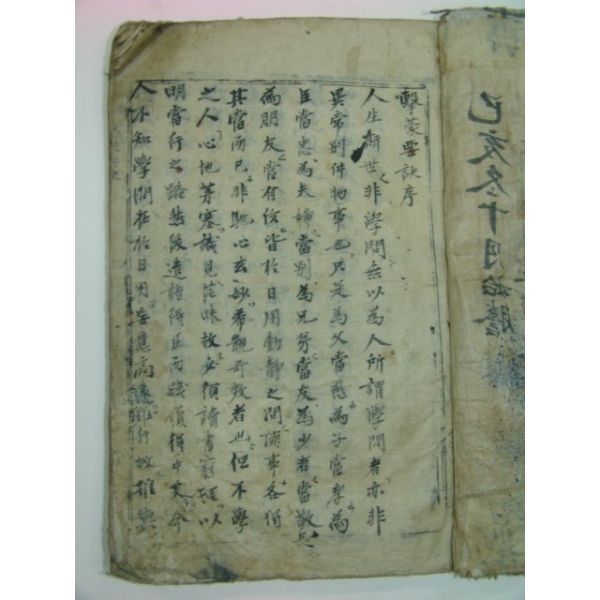 己亥冬十月始謄
擊蒙要訣序
人生斯世非學問無以為人所謂學問者亦非
異常別件物事也只是為父當慈為子當孝為
臣當忠為夫婦當別為兄弟當友為少者當敬長
為朋友當有信皆於日用動靜之間隨事各得
其當而已非馳心玄妙希覬奇效者也但不學
之人心地茅塞識見茫昧故必須讀書窮理以
明當行之路然後造詣得正而踐履得中矣今
人不知學問在於日用而意高遠難行故推與